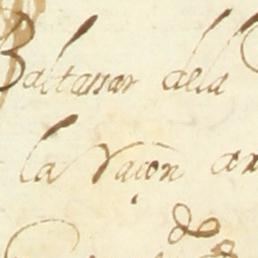 Baltasar dela
la Raçon
de